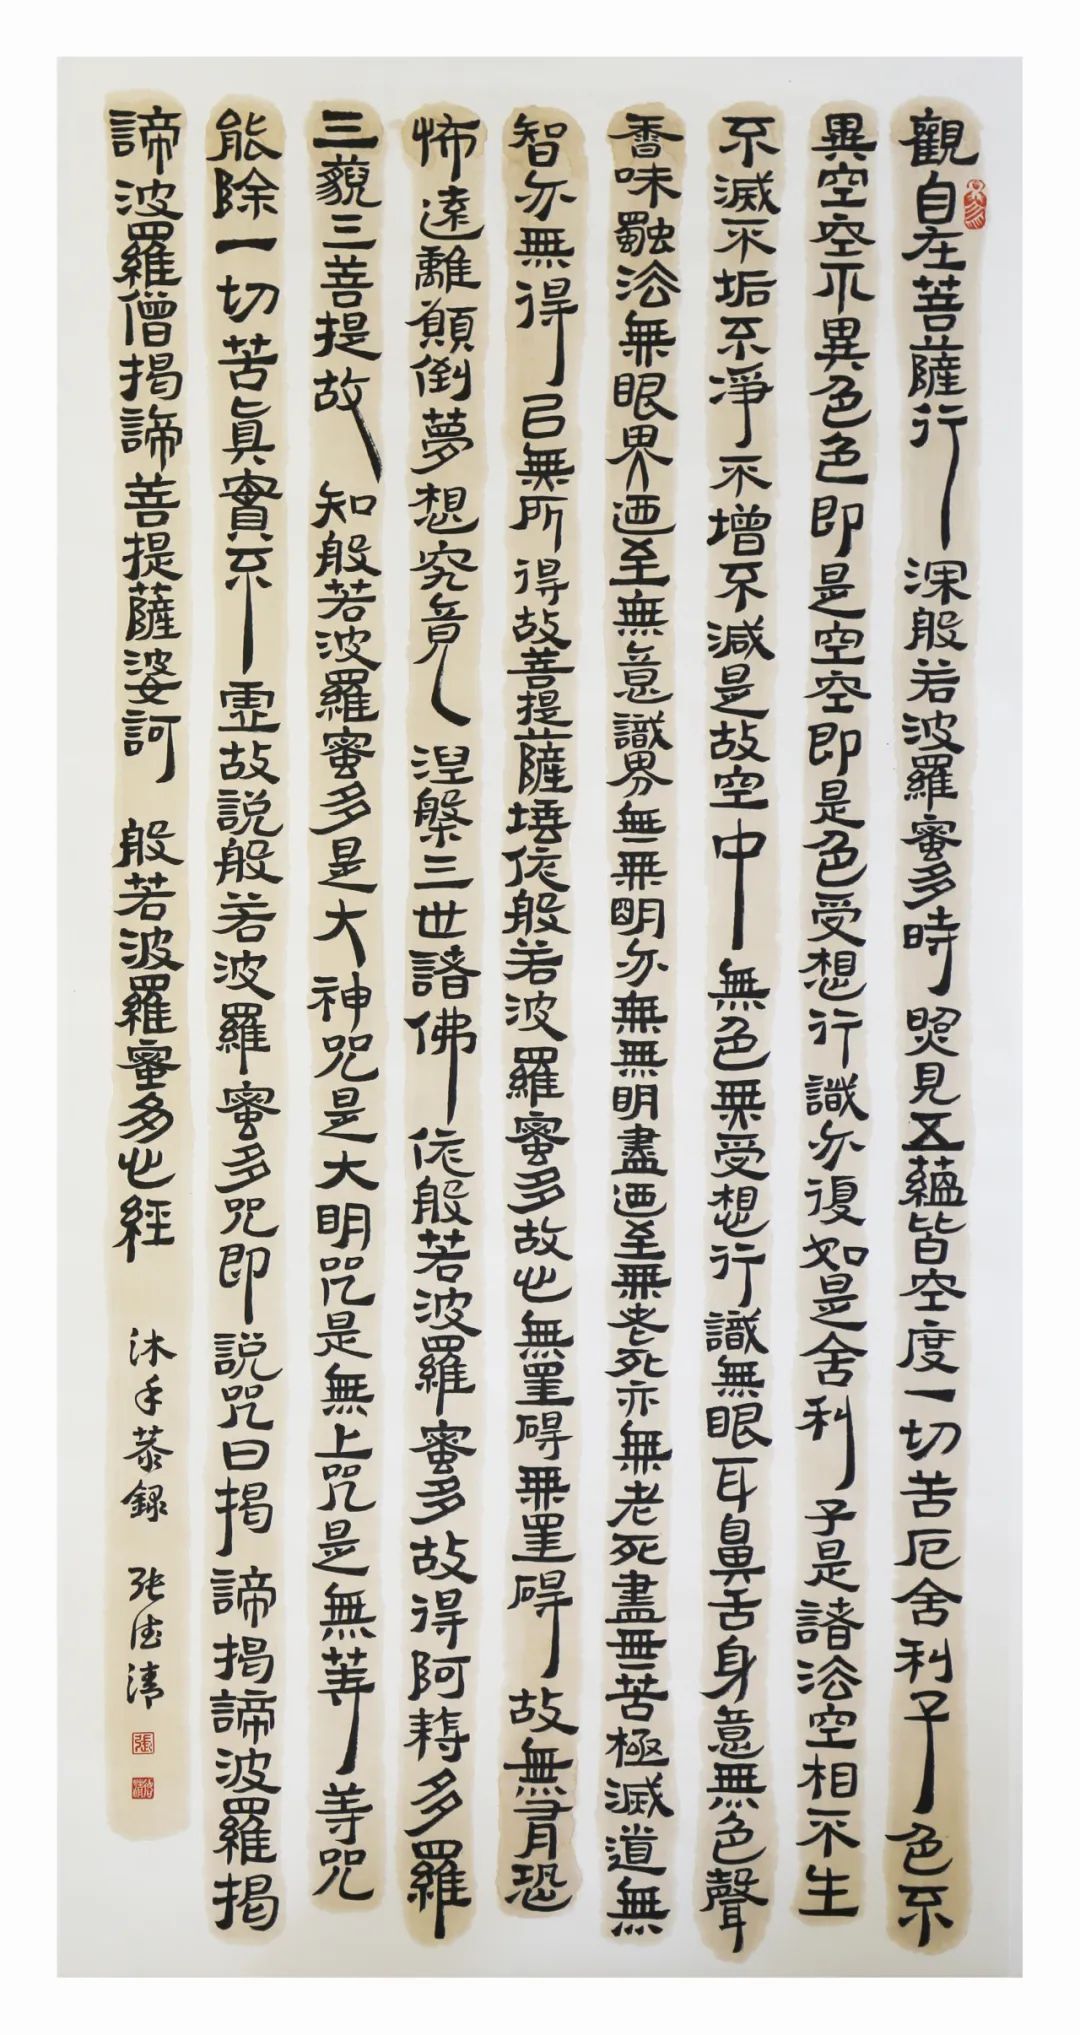 觀自在菩薩行深般若波羅蜜多時照見五蘊皆空度一切苦厄舍利子色不
異空空不異色色即是空空即是色受想行識亦復如是舍利子是諸法空相不生
不滅不垢不淨不增不減是故空中無色無受想行識無眼耳鼻舌身意無色聲
香味觸法無眼界迺至無意識界無無明亦無無明盡迺至無老死亦無老死盡無苦極滅道無
智亦無得以無所得故菩提薩埵依般若波羅蜜多故心無罣碍無罣碍故無有恐
怖遠離顛倒夢想究竟涅槃三世諸佛依般若波羅蜜多故得阿耨多羅
三藐三菩提故知般若波羅蜜多是大神咒是大明咒是無上咒是無等等咒
能除一切苦真實不虛故說般若波羅蜜多咒即說咒曰揭諦揭諦波羅揭
諦波羅僧揭諦菩提薩婆訶 般若波羅蜜多心經 沐手恭録 張德清
張